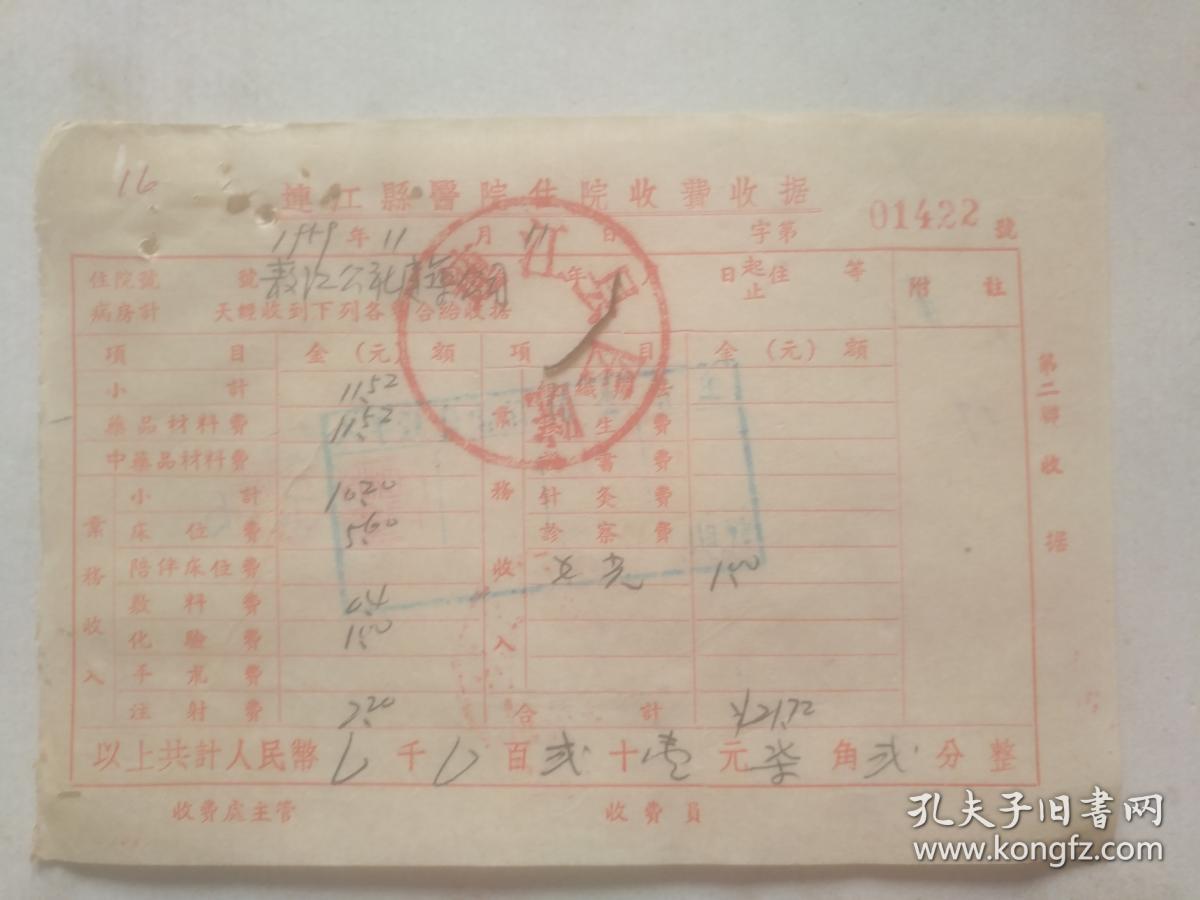 16
連江縣醫院住院收費收据
01422 號
1959 年 11 月 11 日 字第
住院號 號 敖江公社 年 月 日 起 止 住 等
病房計 天經收到下列各費合給收据
附 註
項 目 金(元)額 項 目 金(元)額
小 計 11.52
藥品材料費 11.52 業 生 費
中藥品材料費 費
小 計 10.20 務 針灸費
床位費 5.60 診察費
陪伴床位費 收 光 1.50
敷料費 0.4
化驗費 1.50 入
手朮費
注射費 合 計 ¥21.72
業務收入
以上共計人民幣 千 百 弍 十 壹 元 柒 角 弍 分 整
收費處主管 收費員
第二聯收据
孔夫子旧书网
www.kongfz.com